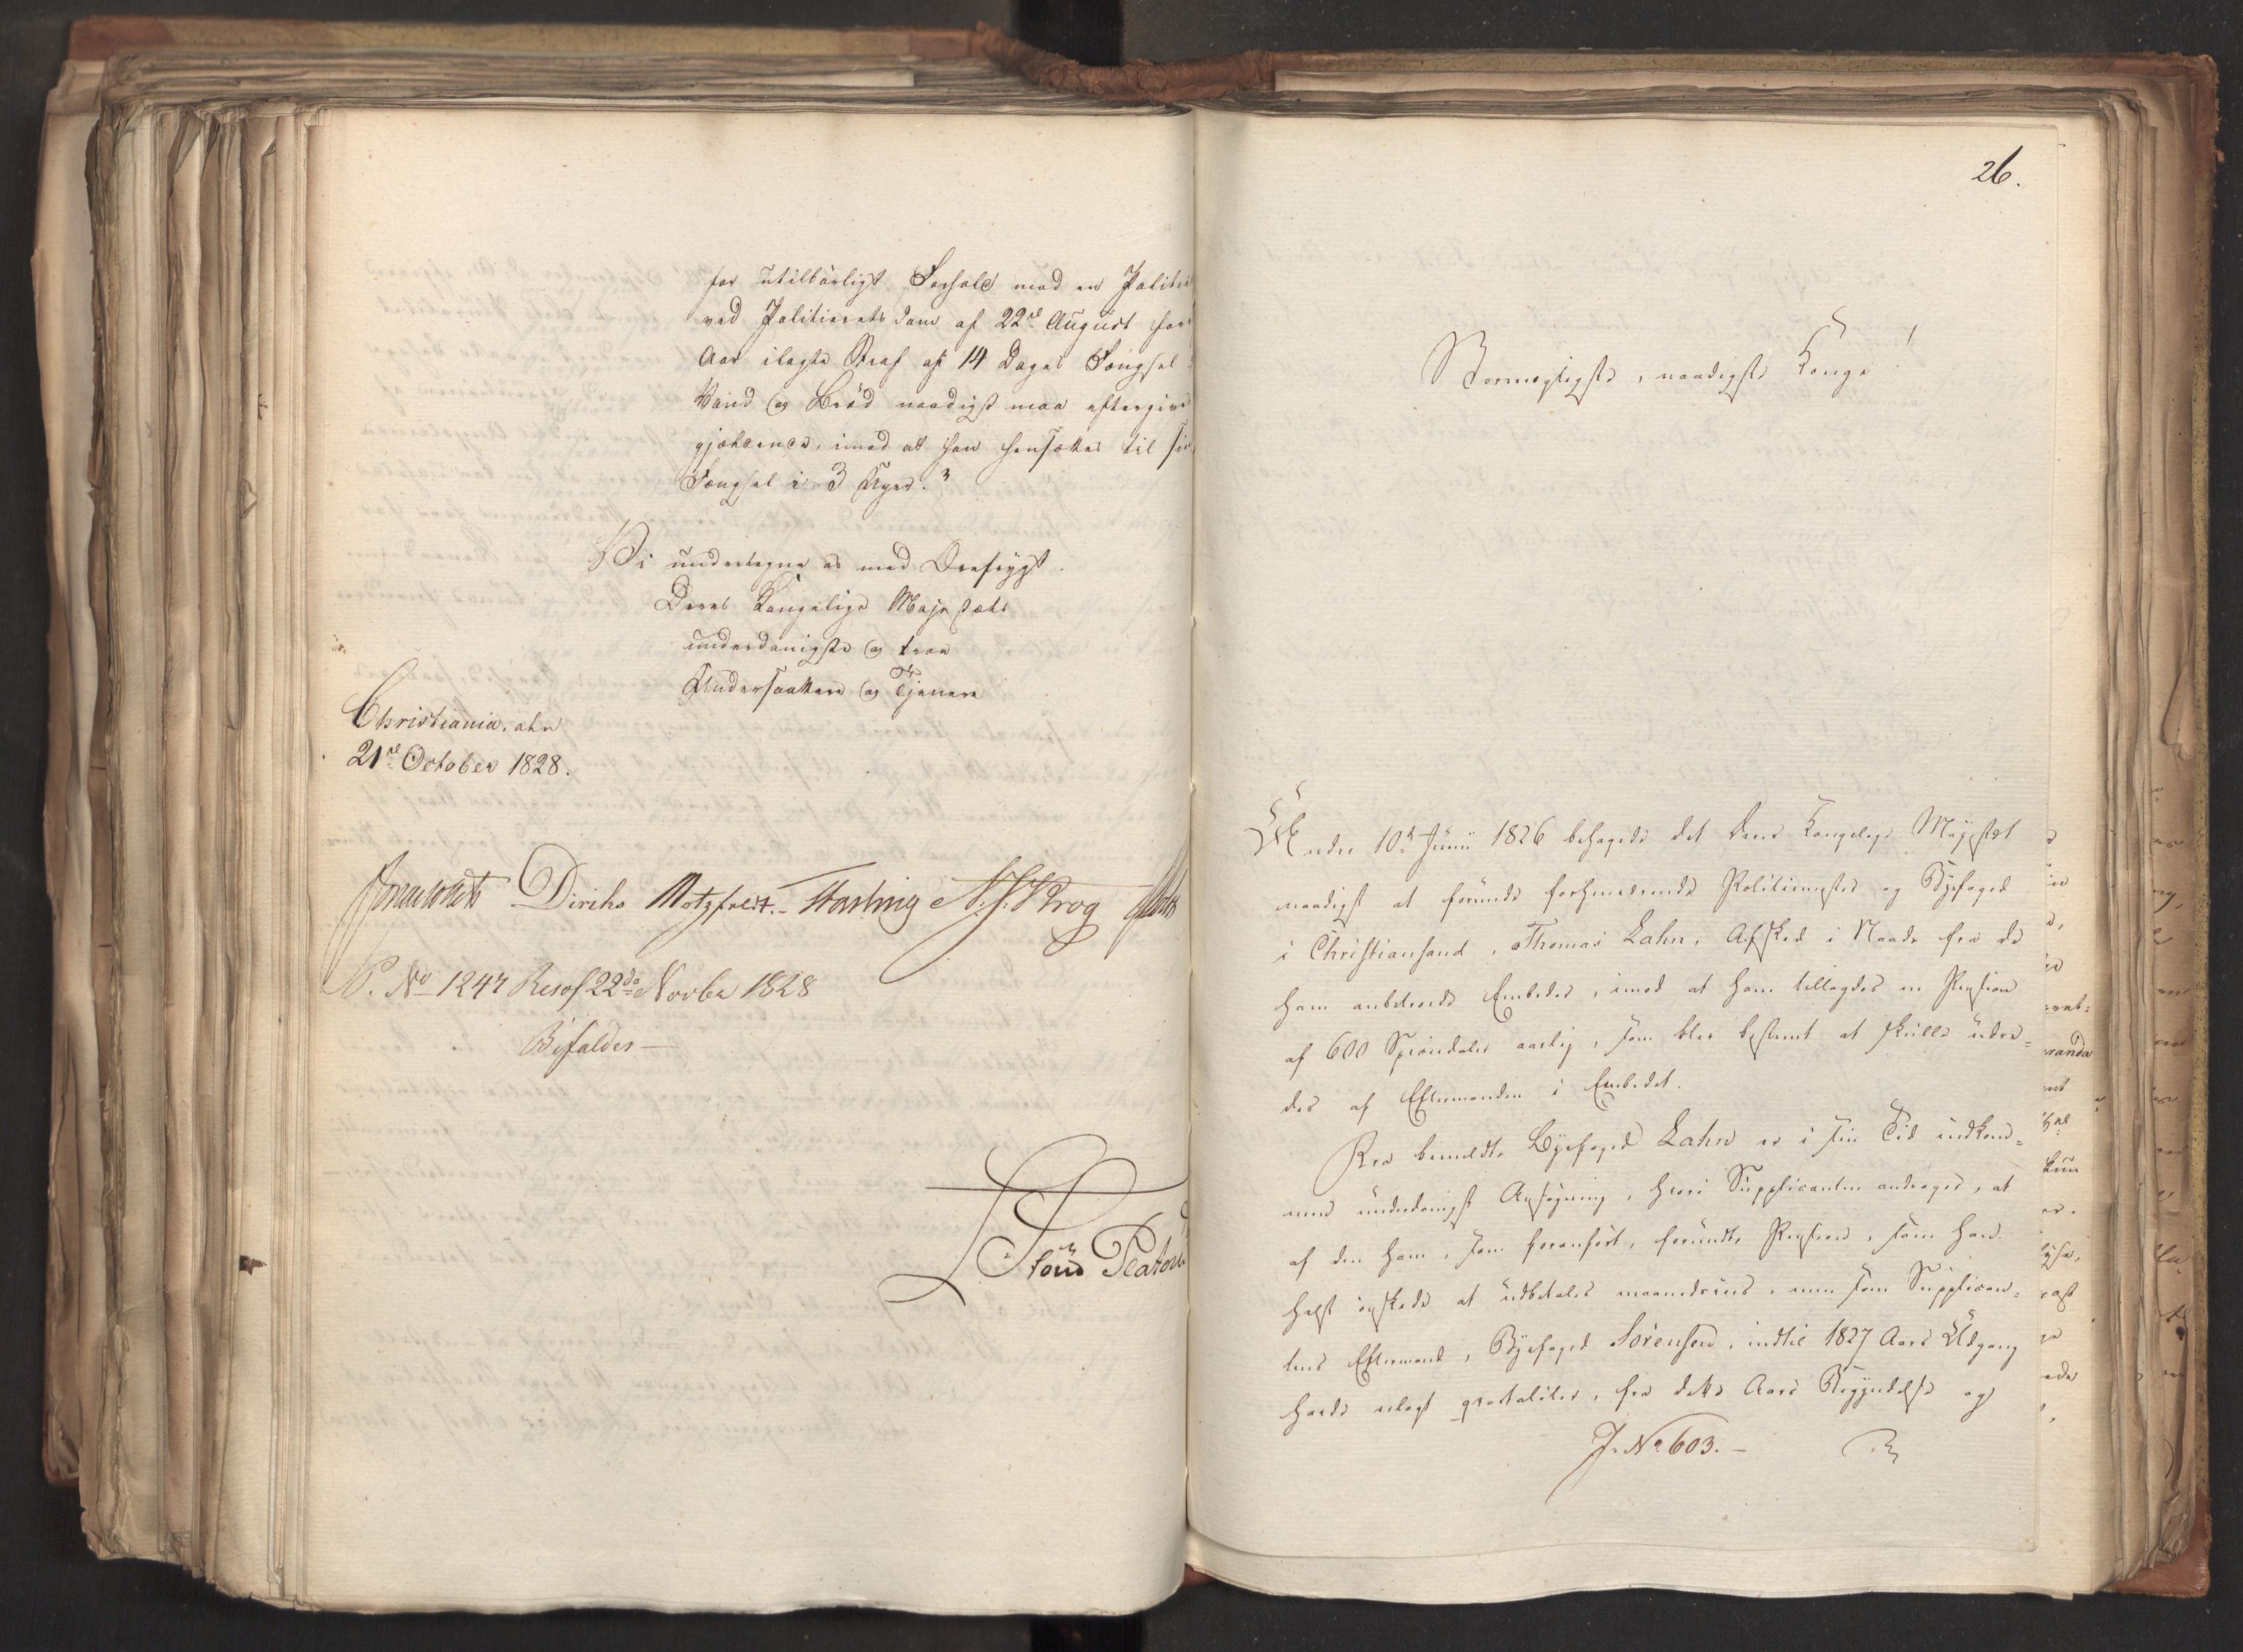 for utilbørligt Forhold mod en Politie
ved Politierets Dom af 22de August
Aar ilagte Straf af 14 Dages Fængsel
Vand og Brød naadigst maa eftergives
imod at han hensættes til
Fængsel i 3 Uger."
Vi undertegne os med Ærefrygt
Deres Kongelige Majestæts
underdanigste og troe
Undersaattere og Tjenere
Christiania, den
21de October 1828.
Diriks Motzfeldt. Fasting N. J. Krog
P. No 1247 Resol. 22de Novbr 1828
Bifaldes –
Stormægtigste, naadigste Konge!
26.
Under 10de Junii 1826 behagede det Deres Kongelige Majestæt
naadigst at forunde forhenværende Politiemester og Byefoged
i Christiansand, Thomas Lahn, Afsked i Naade fra de
ham anbetroede Embeder, imod at ham tillagdes en Pension
af 600 Speciedaler aarlig, som blev bestemt at skulle udre=
des af Eftermanden i Embedet.
Fra bemeldte Byefoged Lahn er i sin Tid indkom=
men underdanigst Ansøgning, hvori Supplicanten andrager, at
af den ham, som foranført, forundte Pension, som han
helst ønskede at udbetales maanedsviis, men som Supplican=
tens Eftermand, Byefoged Sørensen, indtil 1827 Aars Udgang
havde erlagt qvartaliter, fra dette Aars Begyndelse og
J. No 603. –